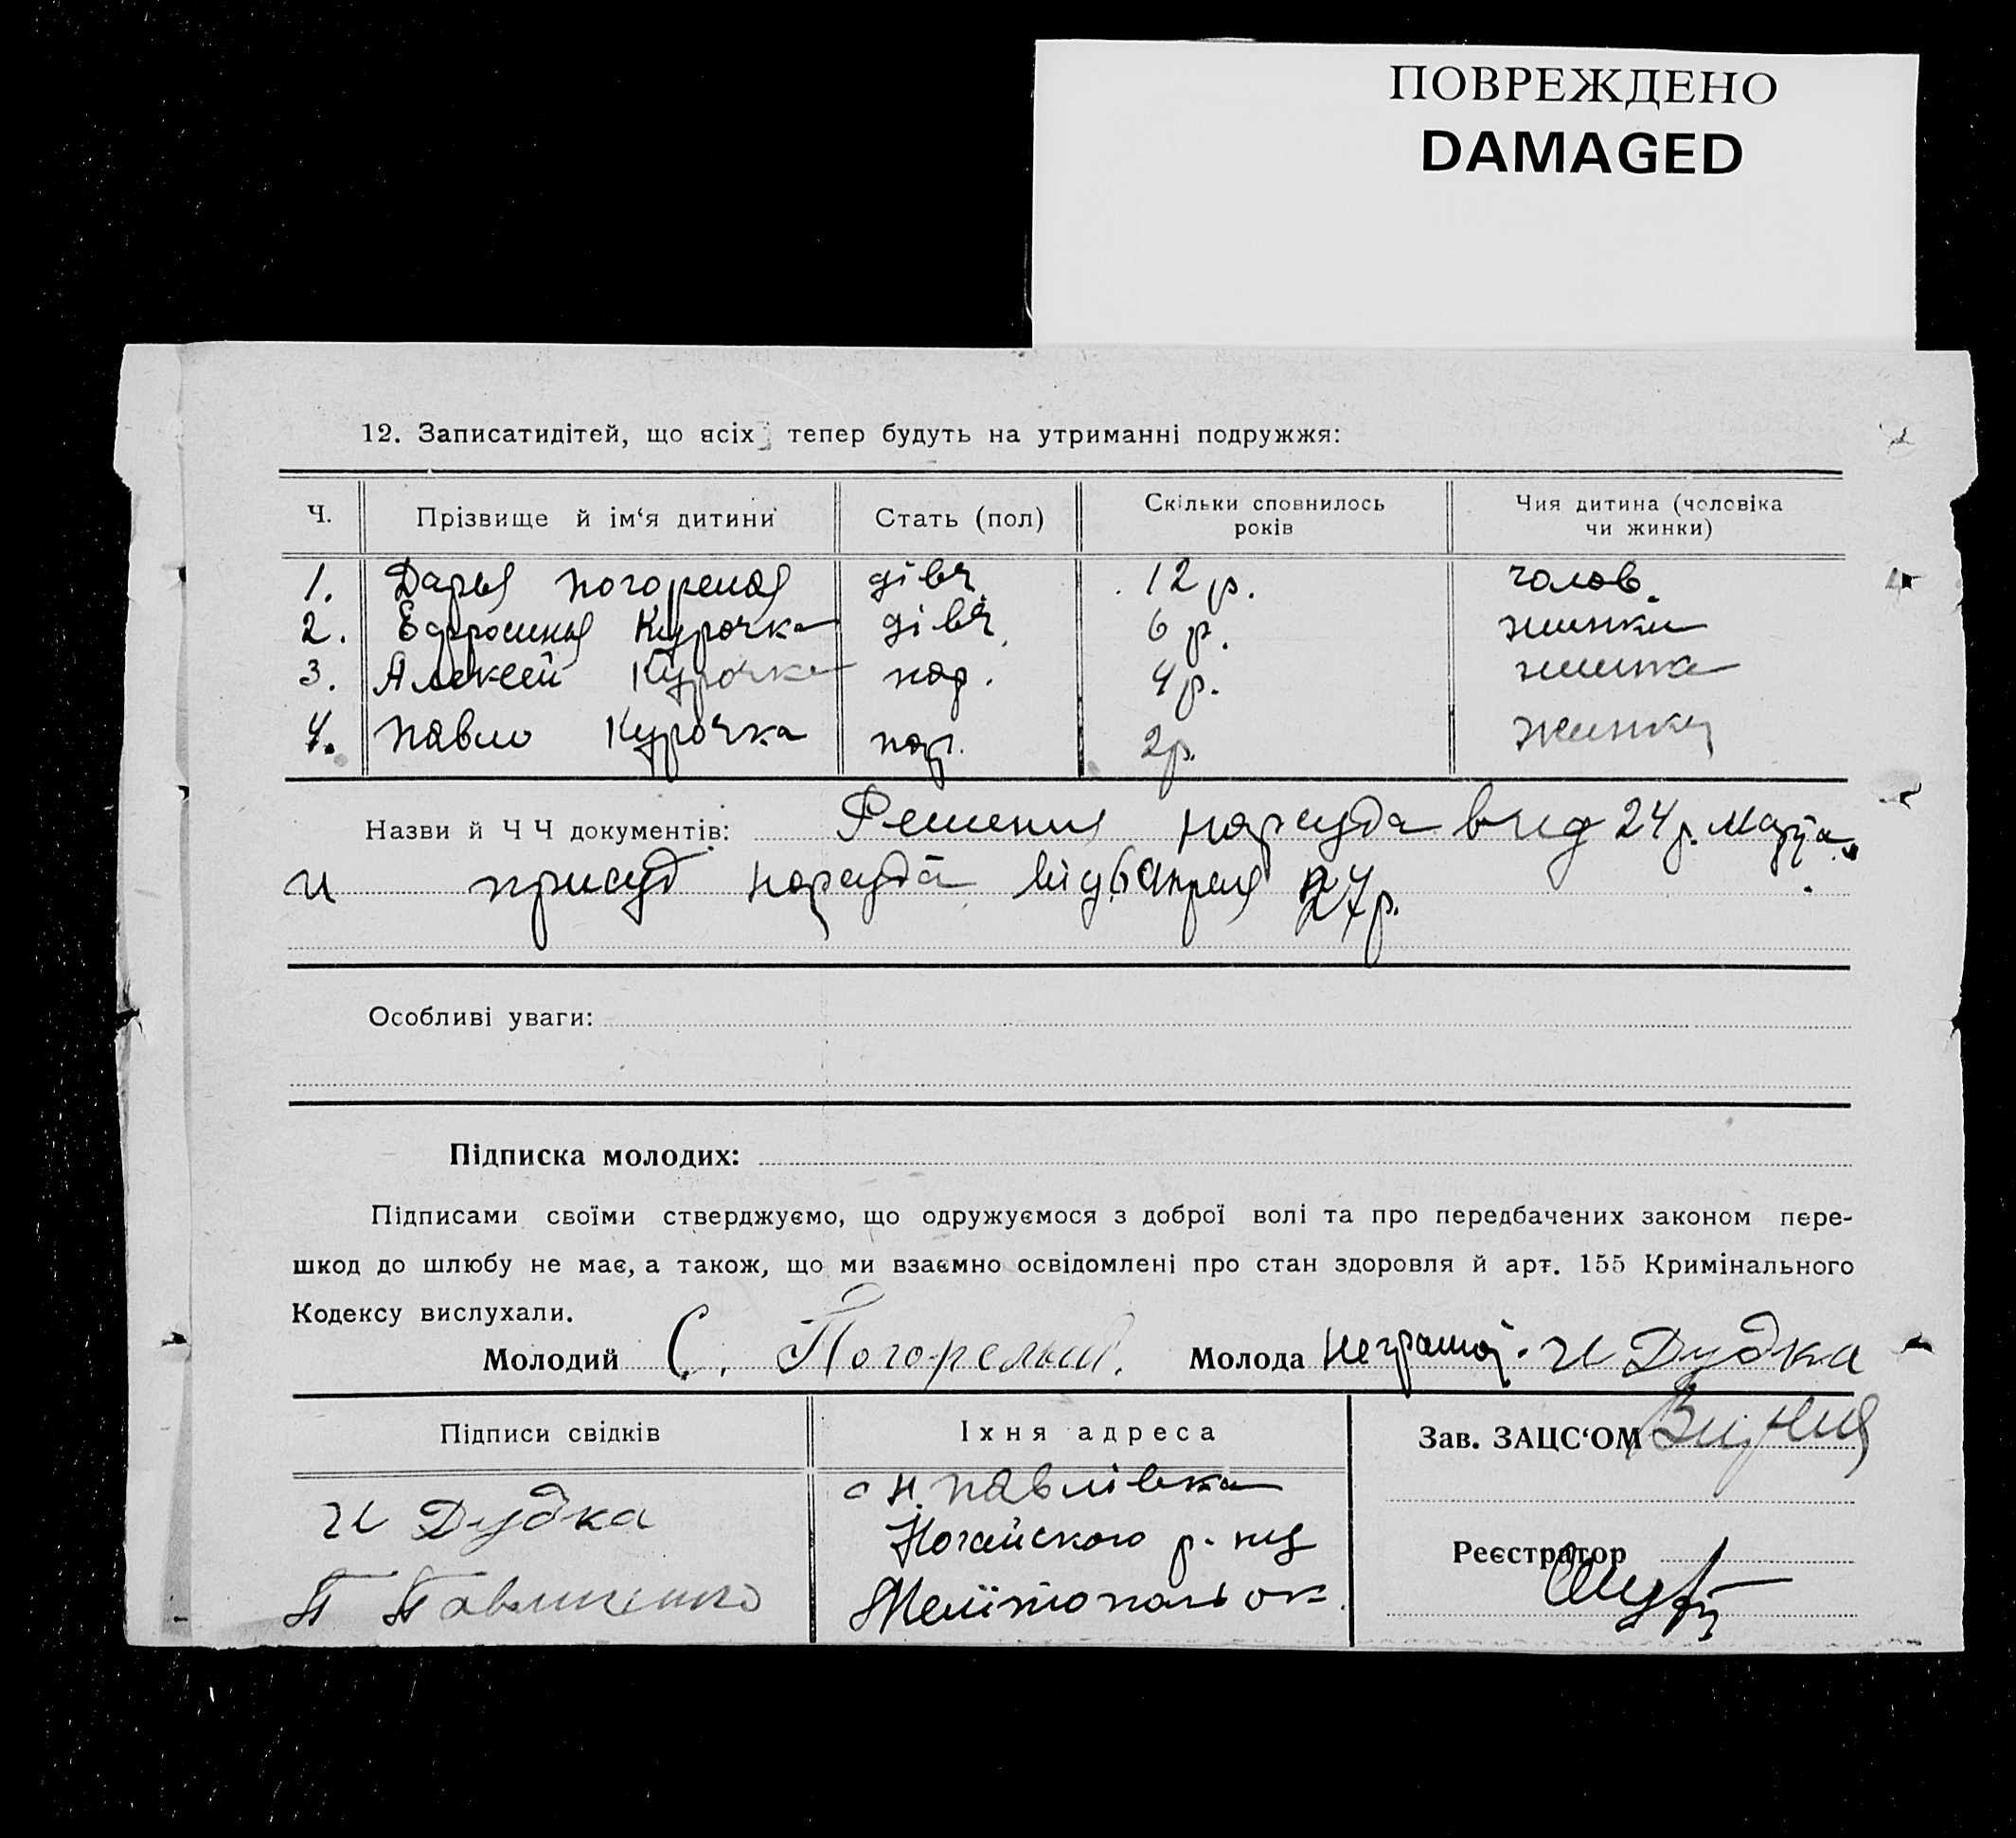 ПОВРЕЖДЕНО
DAMAGED
12. Записатидітей, що всіх тепер будуть на утриманні подружжя:
Ч. Прізвище й ім‘я дитини Стать (пол) Скільки сповнилось років Чия дитина (чоловіка чи жинки)
1. Дарья Погорелая дівч. 12 р. чолов.
2. Ефросиния Курочка дівч. 6 р. жинки
3. Алексей Курочка пар. 4 р. жинки
4. Павло Курочка пар. 2 р. жинки
Назви й Ч Ч документів: Решения нарсуда вид 24 р. марта
и присуд нарсуда від 6 апреля 27 р.
Особливі уваги:
Підписка молодих:
Підписами своїми стверджуємо, що одружуємося з доброї волі та про передбачених законом пере-
шкод до шлюбу не має, а також, що ми взаємно освідомлені про стан здоровля й арт. 155 Кримінального
Кодексу вислухали.
Молодий С. Погорелый. Молода неграмот. И Дудка
Підписи свідків Іхня адреса Зав. ЗАЦС‘ОМ
И Дудка с Н. Павлівка
Ногайского р-ну
Реєстратор
П Павлиненко Мелітополь ок.